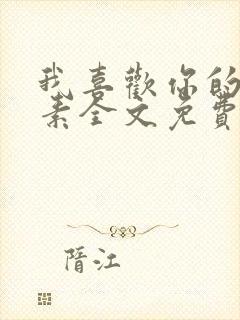 我喜歡你的
素全文免費
隋江